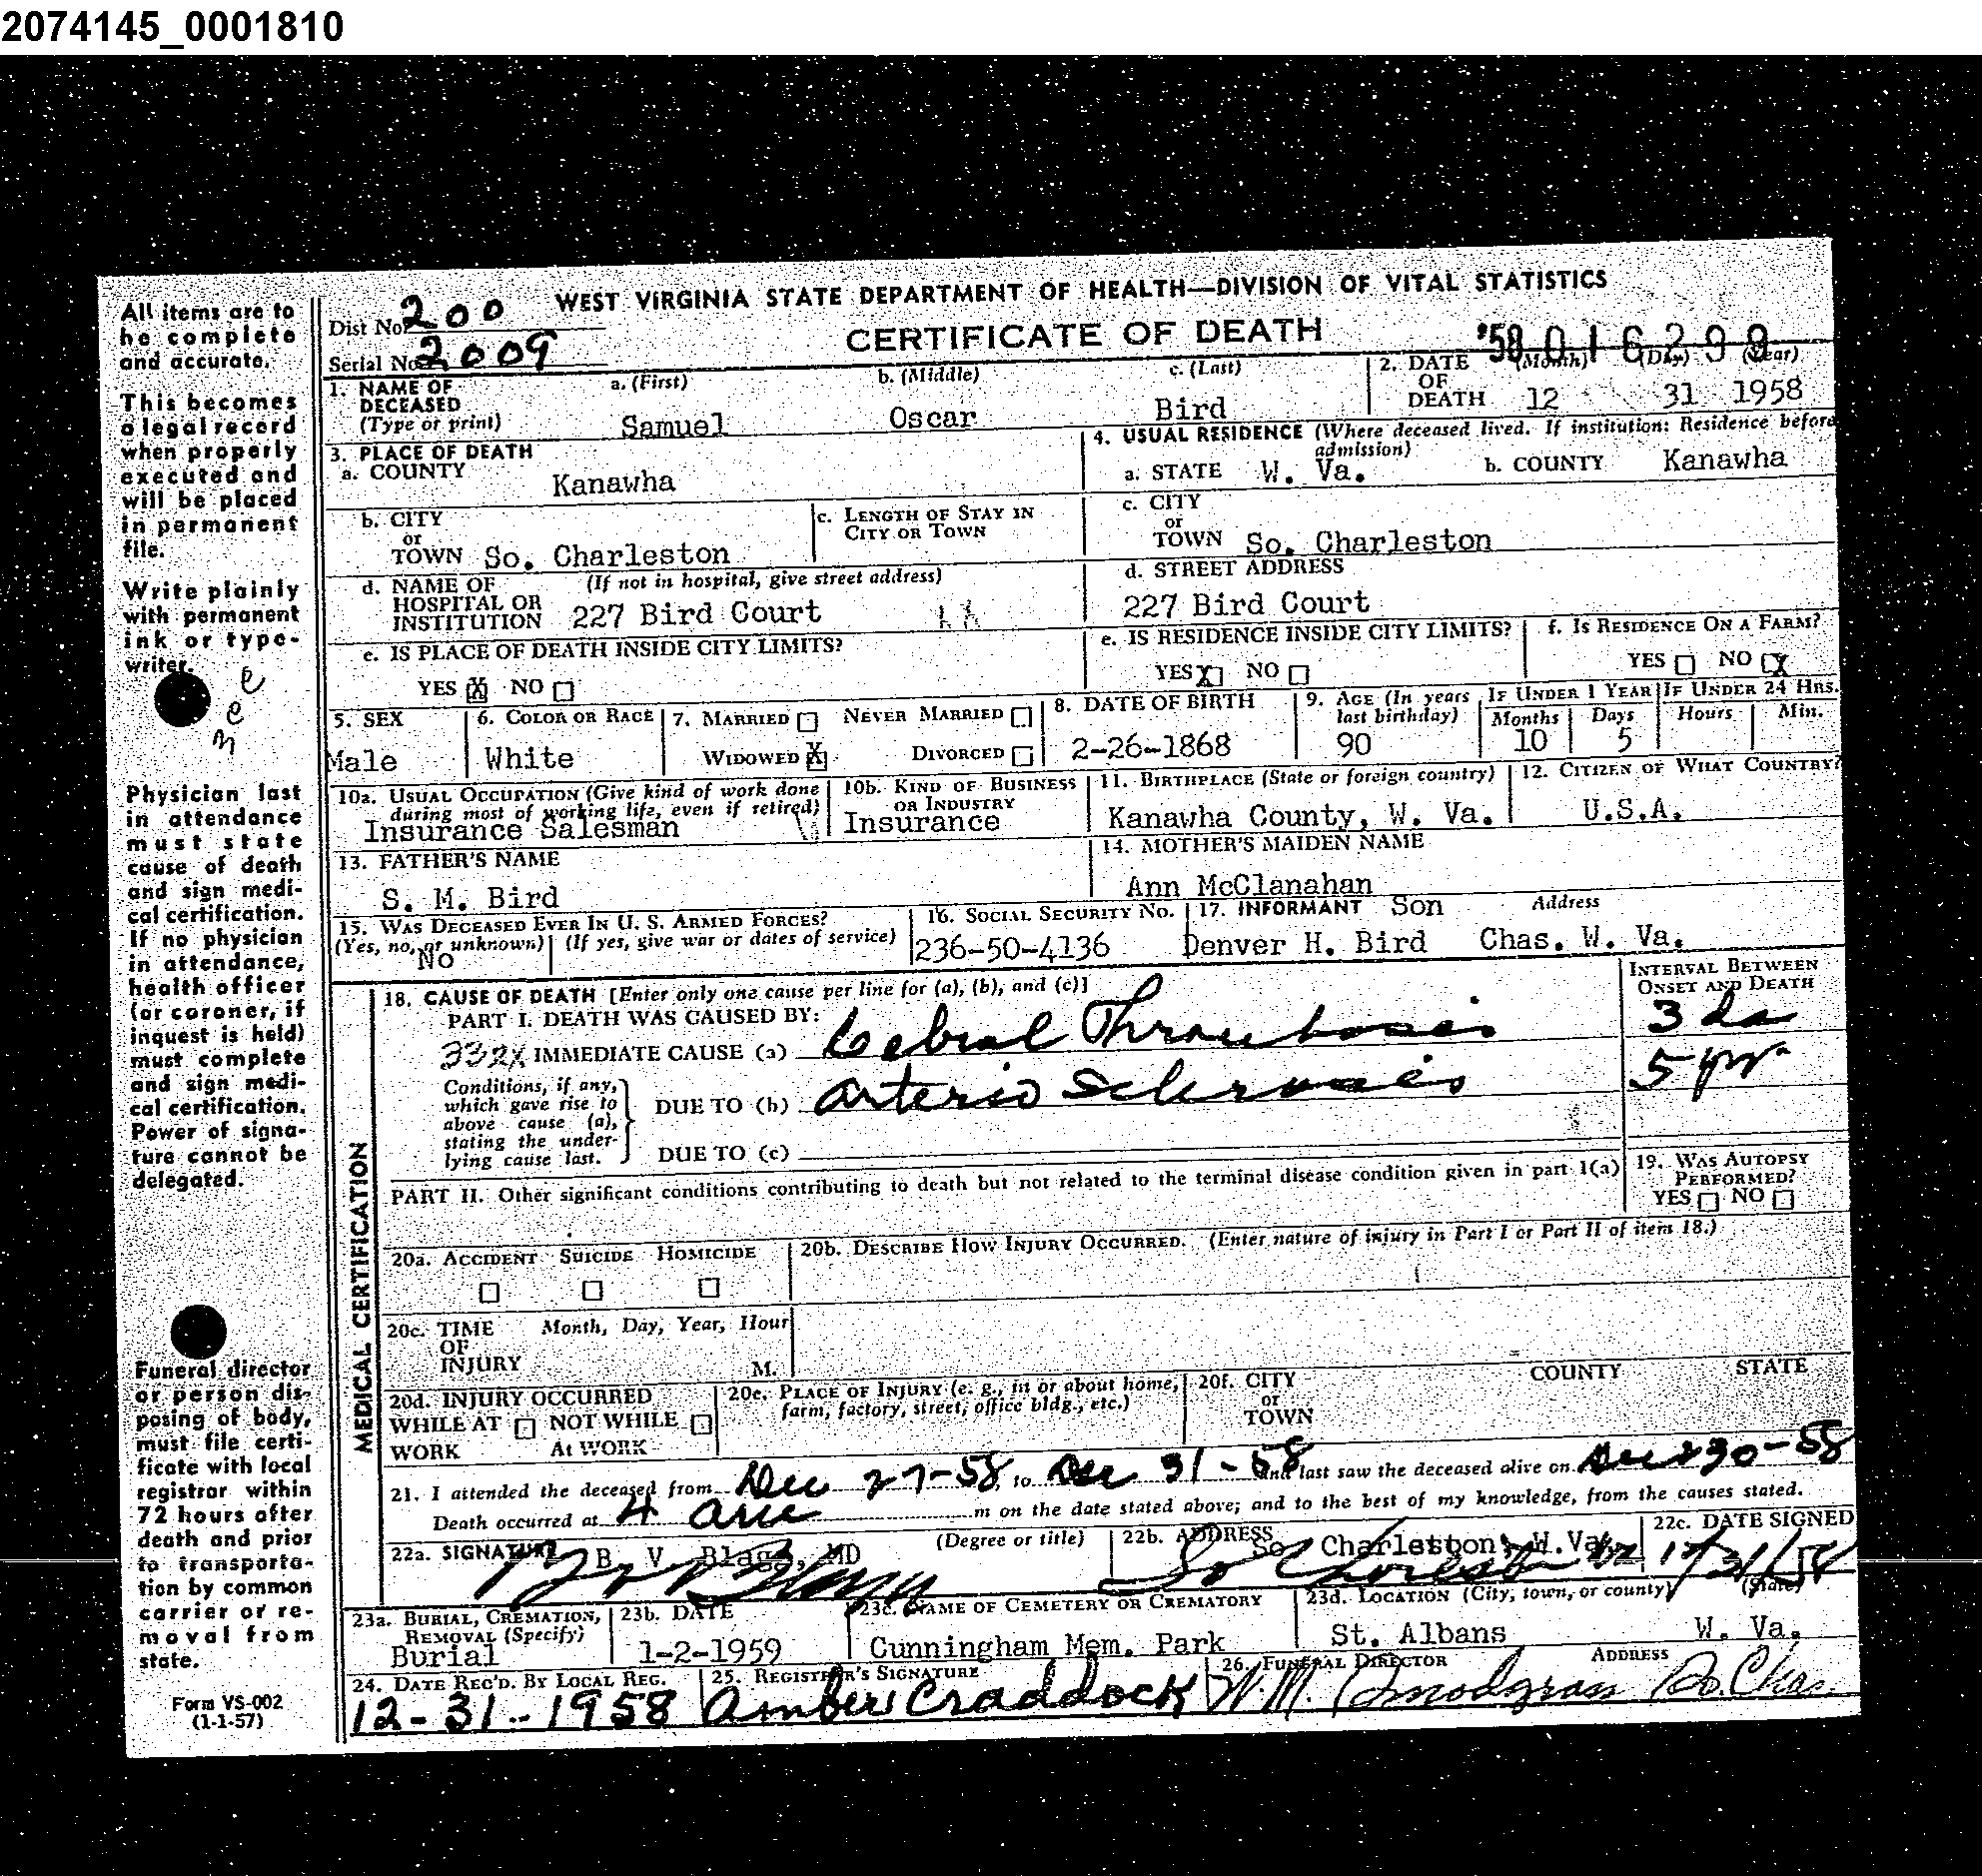 2074145_0001810
WEST VIRGINIA STATE DEPARTMENT OF HEALTH—DIVISION OF VITAL STATISTICS
CERTIFICATE OF DEATH
Dist No. 200
Serial No. 2009
'58 016299
All items are to
be complete
and accurate.
This becomes
a legal record
when properly
executed and
will be placed
in permanent
file.
Write plainly
with permanent
ink or type-
writer.
Physician last
in attendance
must state
cause of death
and sign medi-
cal certification.
If no physician
in attendance,
health officer
(or coroner, if
inquest is held)
must complete
and sign medi-
cal certification.
Power of signa-
ture cannot be
delegated.
Funeral director
or person dis-
posing of body,
must file certi-
ficate with local
registrar within
72 hours after
death and prior
to transporta-
tion by common
carrier or re-
moval from
state.
Form VS-002
(1-1-57)
1. NAME OF DECEASED (Type or print) a. (First) Samuel b. (Middle) Oscar c. (Last) Bird
2. DATE OF DEATH (Month) (Day) (Year) 12 31 1958
3. PLACE OF DEATH
a. COUNTY Kanawha
4. USUAL RESIDENCE (Where deceased lived. If institution: Residence before admission)
a. STATE W. Va. b. COUNTY Kanawha
b. CITY or TOWN So. Charleston
c. LENGTH OF STAY IN CITY OR TOWN
c. CITY or TOWN So. Charleston
d. NAME OF HOSPITAL OR INSTITUTION (If not in hospital, give street address) 227 Bird Court
d. STREET ADDRESS 227 Bird Court
e. IS PLACE OF DEATH INSIDE CITY LIMITS?
YES X NO
e. IS RESIDENCE INSIDE CITY LIMITS?
YES X NO
f. IS RESIDENCE ON A FARM?
YES NO X
5. SEX Male
6. COLOR OR RACE White
7. MARRIED NEVER MARRIED
WIDOWED X DIVORCED
8. DATE OF BIRTH 2-26-1868
9. AGE (In years last birthday) 90
IF UNDER 1 YEAR Months 10 Days 5
IF UNDER 24 HRS. Hours Min.
10a. USUAL OCCUPATION (Give kind of work done during most of working life, even if retired) Insurance Salesman
10b. KIND OF BUSINESS OR INDUSTRY Insurance
11. BIRTHPLACE (State or foreign country) Kanawha County, W. Va.
12. CITIZEN OF WHAT COUNTRY? U.S.A.
13. FATHER'S NAME S. M. Bird
14. MOTHER'S MAIDEN NAME Ann McClanahan
15. WAS DECEASED EVER IN U. S. ARMED FORCES?
(Yes, no, or unknown) No (If yes, give war or dates of service)
16. SOCIAL SECURITY NO. 236-50-4136
17. INFORMANT Son Address
Denver H. Bird Chas. W. Va.
MEDICAL CERTIFICATION
18. CAUSE OF DEATH [Enter only one cause per line for (a), (b), and (c)]
INTERVAL BETWEEN ONSET AND DEATH
PART I. DEATH WAS CAUSED BY:
332X IMMEDIATE CAUSE (a) Cebral Thrombosis 3 da
Conditions, if any, which gave rise to above cause (a), stating the underlying cause last.
DUE TO (b) Arterio Sclerosis 5 yr
DUE TO (c)
PART II. Other significant conditions contributing to death but not related to the terminal disease condition given in part I(a)
19. WAS AUTOPSY PERFORMED?
YES NO
20a. ACCIDENT SUICIDE HOMICIDE
20b. DESCRIBE HOW INJURY OCCURRED. (Enter nature of injury in Part I or Part II of item 18.)
20c. TIME OF INJURY Month, Day, Year, Hour M.
20d. INJURY OCCURRED
WHILE AT WORK NOT WHILE AT WORK
20e. PLACE OF INJURY (e. g., in or about home, farm, factory, street, office bldg., etc.)
20f. CITY or TOWN COUNTY STATE
21. I attended the deceased from Dec 27-58, to Dec 31-58 and last saw the deceased alive on Dec 30-58
Death occurred at 4 am m on the date stated above; and to the best of my knowledge, from the causes stated.
22a. SIGNATURE B. V. Blagg, MD (Degree or title)
22b. ADDRESS So. Charleston, W.Va.
22c. DATE SIGNED 12/31/58
23a. BURIAL, CREMATION, REMOVAL (Specify) Burial
23b. DATE 1-2-1959
23c. NAME OF CEMETERY OR CREMATORY Cunningham Mem. Park
23d. LOCATION (City, town, or county) (State)
St. Albans W. Va.
24. DATE REC'D. BY LOCAL REG. 12-31-1958
25. REGISTRAR'S SIGNATURE Amber Craddock
26. FUNERAL DIRECTOR ADDRESS
W. M. Snodgrass So. Chas.